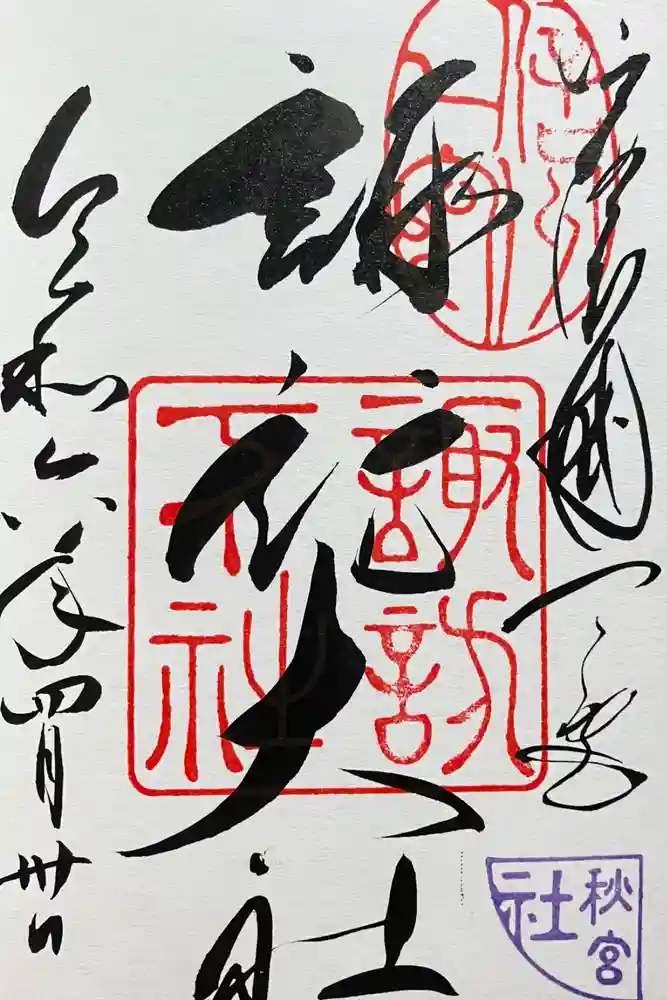 信濃國一之宮
諏訪大社
諏訪
下社
令和六年四月卅日
秋宮
社